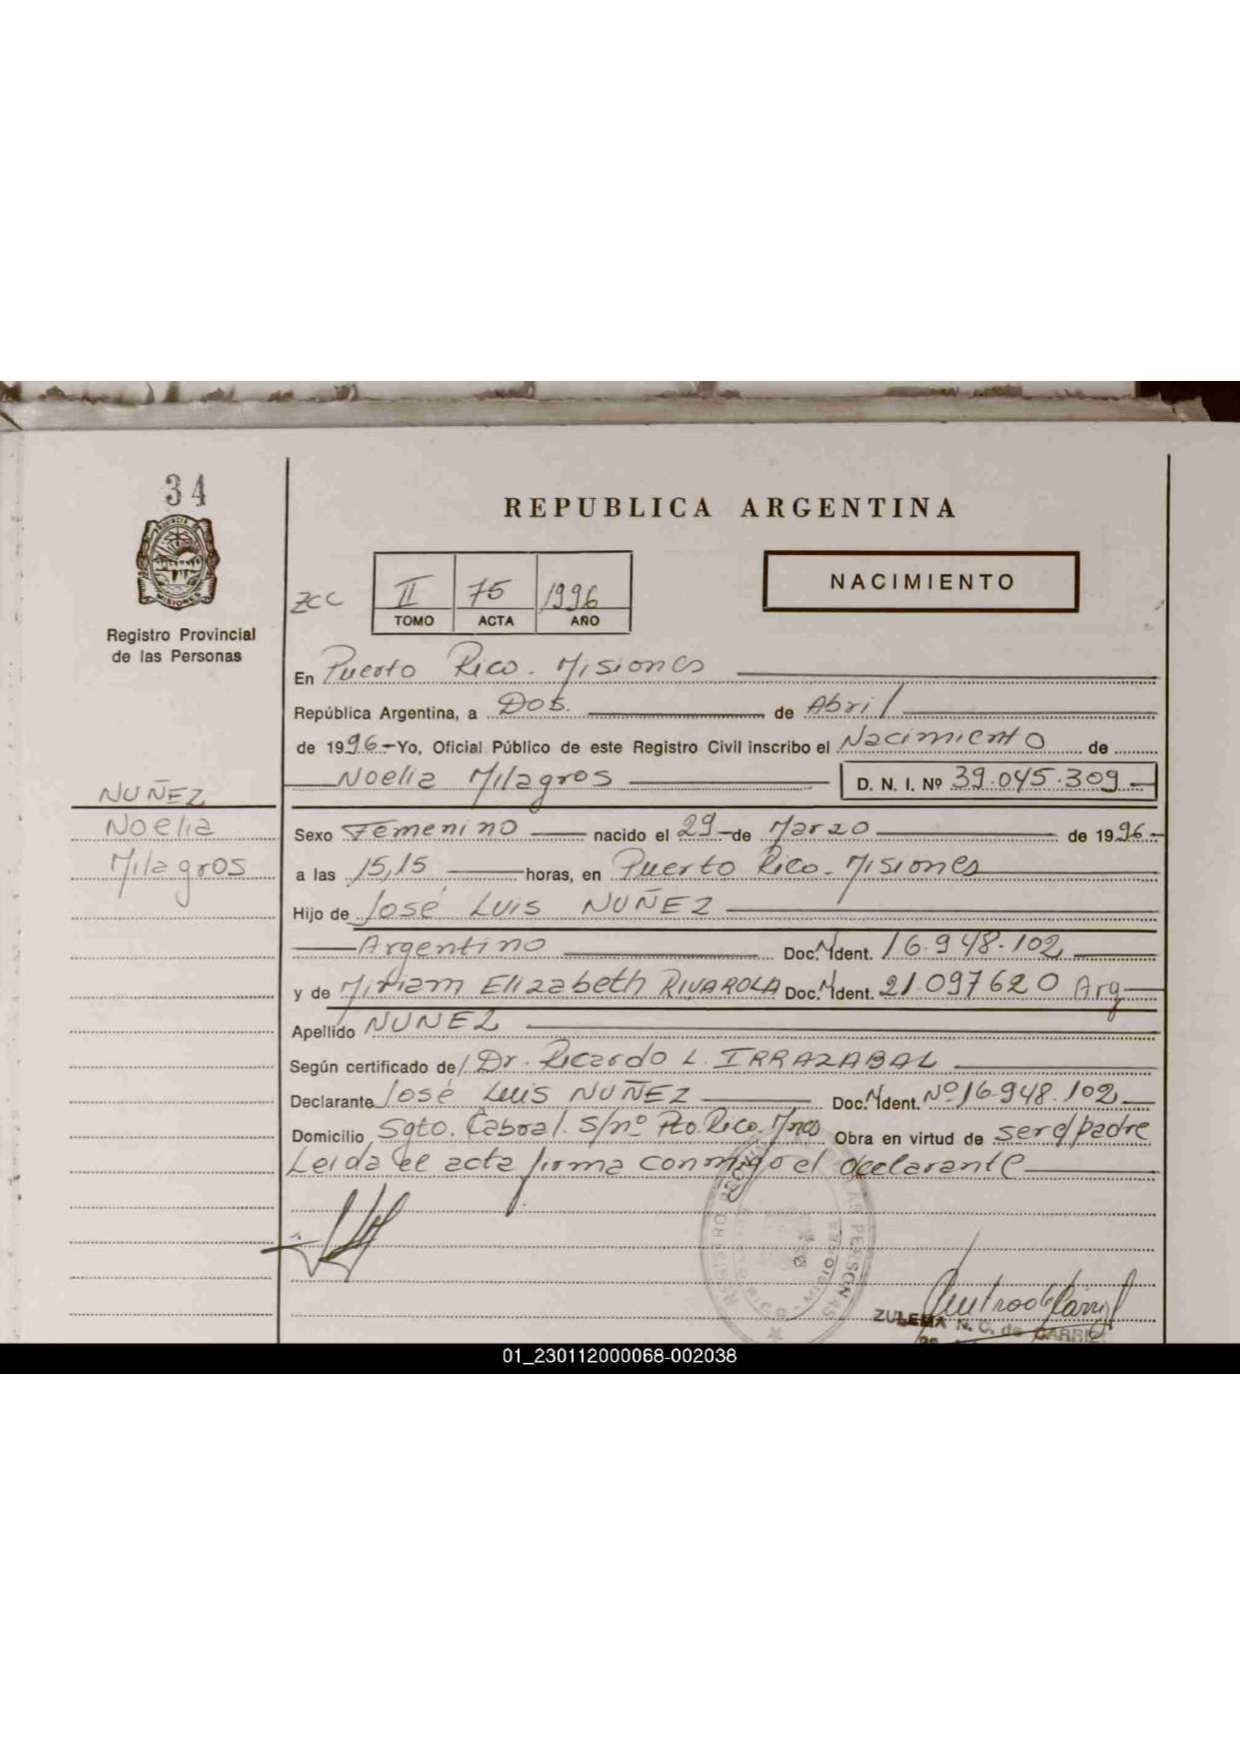 34
PROVINCIA DE
MISIONES
Registro Provincial
de las Personas
REPUBLICA ARGENTINA
NACIMIENTO
ZCC
II 75 1996
TOMO ACTA AÑO
En Puerto Rico. Misiones
República Argentina, a Dos. de Abril
de 1996.- Yo, Oficial Público de este Registro Civil inscribo el Nacimiento de
Noelia Milagros D. N. I. Nº 39.045.309.-
NUÑEZ
Noelia
Milagros
Sexo Femenino nacido el 29 de Marzo de 1996.-
a las 15,15 horas, en Puerto Rico. Misiones
Hijo de José Luis NUÑEZ
Argentino Doc. Ident. 16.948.102
y de Miriam Elizabeth RIVAROLA Doc. Ident. 21.097620 Arg
Apellido NUÑEZ
Según certificado de Dr. Ricardo L. IRRAZABAL
Declarante José Luis NUÑEZ Doc. Ident. Nº 16.948.102
Domicilio Sgto. Cabral. S/nº Pto. Rico. Mnes Obra en virtud de ser el padre
Leida el acta firma conmigo el declarante
ZULEMA N. C. de CARRIL
01_230112000068-002038